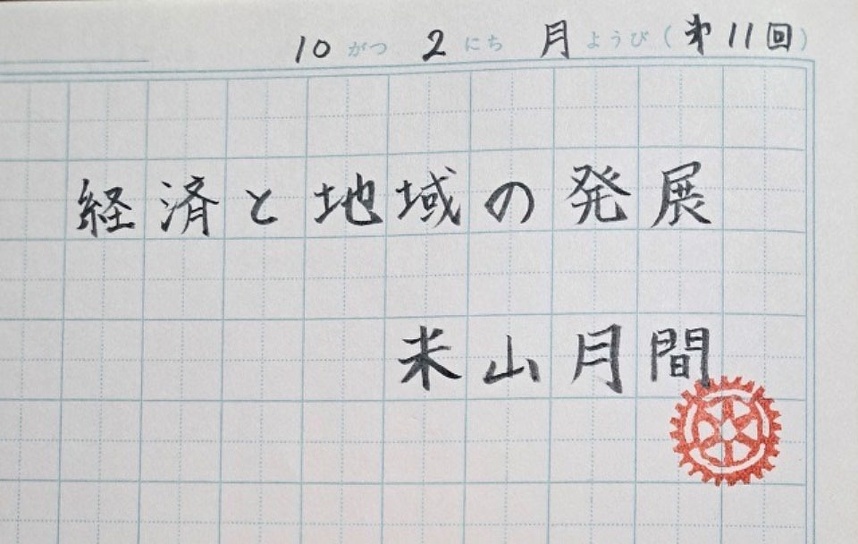 10 がつ 2 にち 月 ようび (第11回)
経済と地域の発展
米山月間